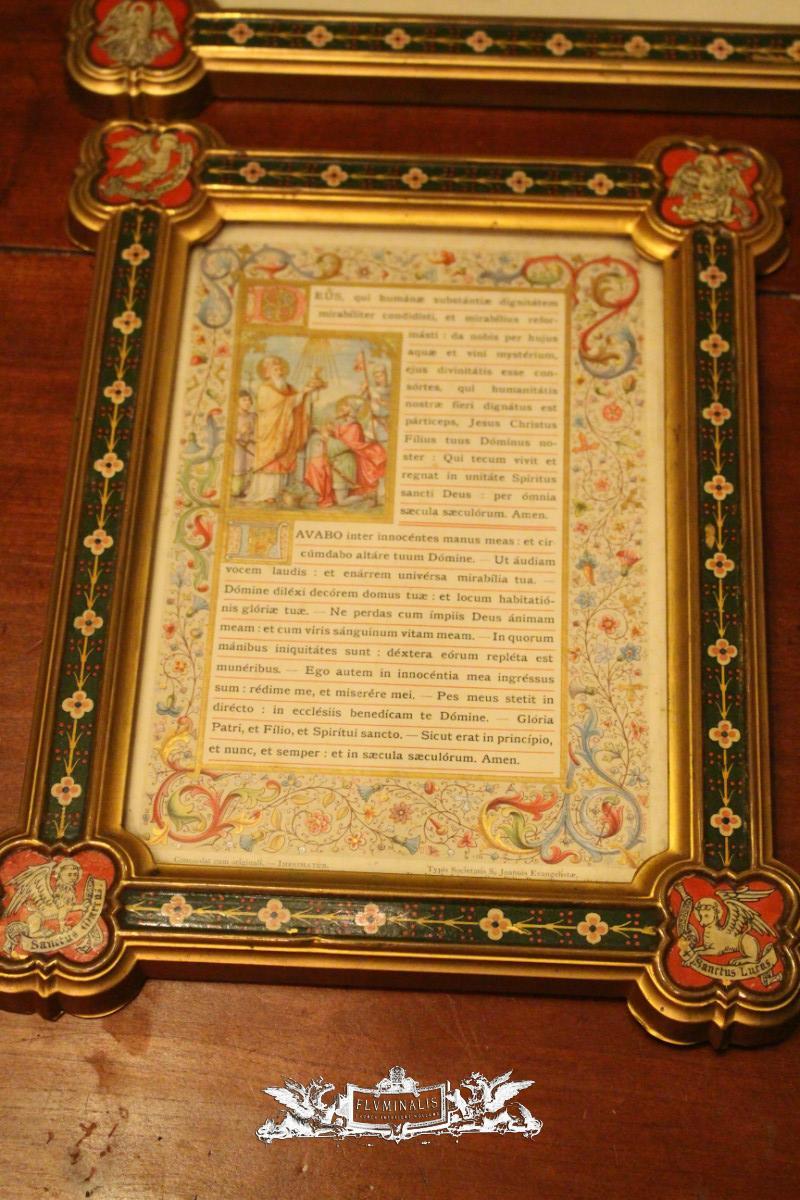 DEŬS, qui humánæ substántiæ dignitátem
mirabíliter condidísti, et mirabílius refor-
másti : da nobis per hujus
aquæ et vini mystérium,
ejus divinitátis esse con-
sórtes, qui humanitátis
nostræ fíeri dignátus est
párticeps, Jesus Christus
Fílius tuus Dóminus no-
ster : Qui tecum vivit et
regnat in unitáte Spíritus
sancti Deus : per ómnia
sæcula sæculórum. Amen.
LAVABO inter innocéntes manus meas : et cir
cúmdabo altáre tuum Dómine. — Ut áudiam
vocem laudis : et enárrem univérsa mirabília tua. —
Dómine diléxi decórem domus tuæ : et locum habitatió-
nis glóriæ tuæ. — Ne perdas cum ímpiis Deus ánimam
meam : et cum viris sánguinum vitam meam. — In quorum
mánibus iniquitátes sunt : déxtera eórum repléta est
munéribus. — Ego autem in innocéntia mea ingréssus
sum : rédime me, et miserére mei. — Pes meus stetit in
dirécto : in ecclésiis benedícam te Dómine. — Glória
Patri, et Fílio, et Spirítui sancto. — Sicut erat in princípio,
et nunc, et semper : et in sæcula sæculórum. Amen.
Concordat cum originali. — IMPRIMATUR.
Typis Societatis S. Joannis Evangelistæ.
Sanctus Marcus
Sanctus Lucas
FLVMINALIS